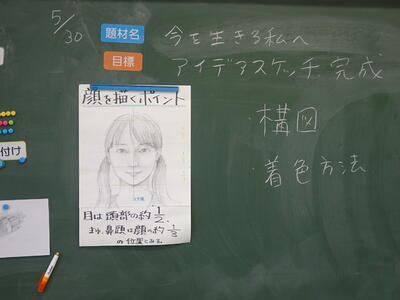 5/30
題材名 今を生きる私へ
目標 アイデアスケッチ完成
・構図
・着色方法
付け
顔を描くポイント
目は頭部の約1/2、
また、鼻頭は顔の約1/3
の位置にある。